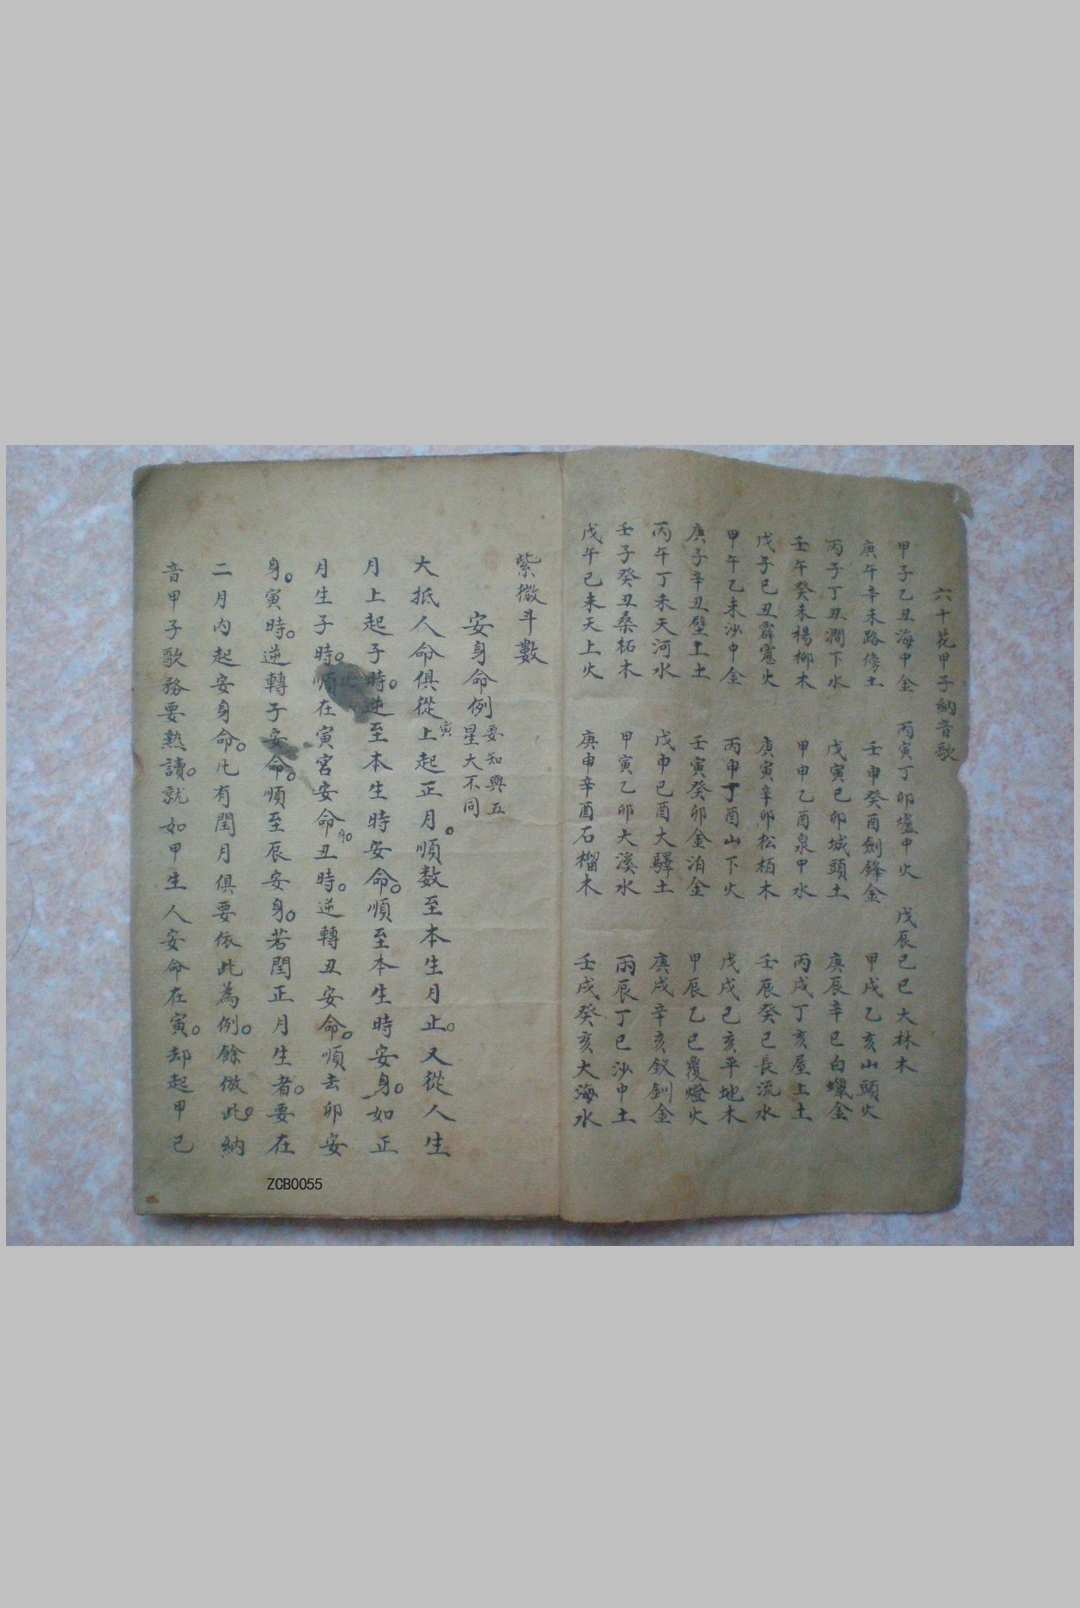 六十花甲子納音歌
甲子乙丑海中金 丙寅丁卯爐中火 戊辰己巳大林木
庚午辛未路傍土 壬申癸酉劍鋒金 甲戌乙亥山頭火
丙子丁丑澗下水 戊寅己卯城頭土 庚辰辛巳白蠟金
壬午癸未楊柳木 甲申乙酉泉中水 丙戌丁亥屋上土
戊子己丑霹靂火 庚寅辛卯松栢木 壬辰癸巳長流水
甲午乙未沙中金 丙申丁酉山下火 戊戌己亥平地木
庚子辛丑壁土土 壬寅癸卯金泊金 甲辰乙巳覆燈火
丙午丁未天河水 戊申己酉大驛土 庚戌辛亥釵釧金
壬子癸丑桑柘木 甲寅乙卯大溪水 丙辰丁巳沙中土
戊午己未天上火 庚申辛酉石榴木 壬戌癸亥大海水
紫微斗數
安身命例 要知與五
星大不同
大抵人命俱從寅上起正月。順数至本生月止。又從人生
月上起子時。逆至本生時安命。順至本生時安身。如正
月生子時。順在寅宮安命身。丑時。逆轉丑安命。順去卯安
身。寅時。逆轉子安命。順至辰安身。若閏正月生者。要在
二月内起安身命。凡有閏月俱要依此為例。餘倣此。納
音甲子歌務要熟讀。就如甲生人安命在寅。却起甲己
ZCB0055